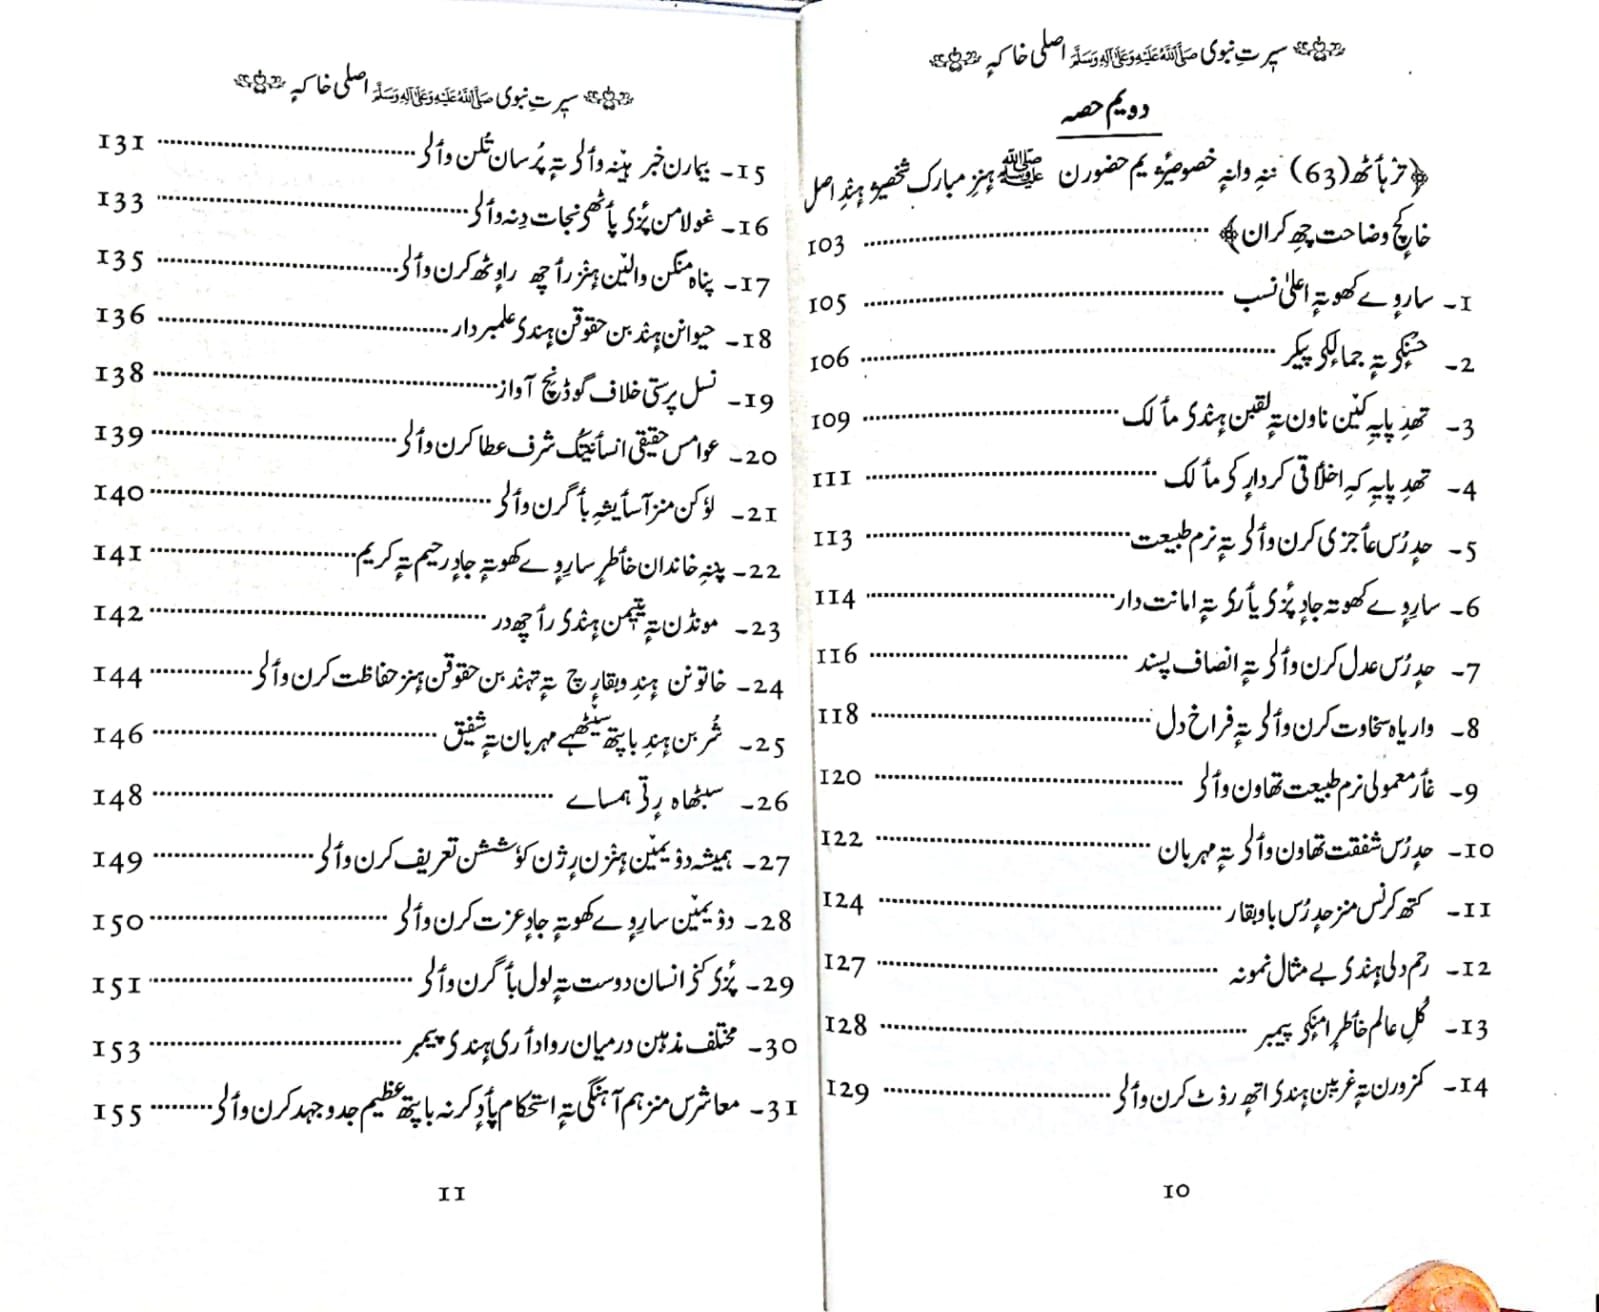 سیرتِ نبوی ﷺ اصلی خاکہٕ
دویم حصہ
﴿ترٛہٲٹھ (63) ننہٕ وانہِ خصوصیژٕ یم حضورن ﷺ ہنزِ مبارک شخصیژٕ ہنٛدِ اصل
خاکٕچ وضاحت چھِ کران﴾ ........ 103
1۔ سارِوٕے کھوتہٕ اعلیٰ نسب ........ 105
2۔ حُسنٕکؠ تہٕ جمالٕکؠ پیکر ........ 106
3۔ تھٔدِ پایہِ کٮ۪ن ناون تہٕ لقبن ہٕنٛدؠ مٲلک ........ 109
4۔ تھٔدِ پایہِ کہِ اخلٲقی کردارٕکؠ مٲلک ........ 111
5۔ حدٕ رٔس عٲجزی کرن وٲلؠ تہٕ نرم طبیعت ........ 113
6۔ سارِوٕے کھوتہٕ جادٕ پٔزؠ یٲرؠ تہٕ امانت دار ........ 114
7۔ حدٕ رٔس عدل کرن وٲلؠ تہٕ انصاف پسند ........ 116
8۔ واریاہ سخاوت کرن وٲلؠ تہٕ فراخ دل ........ 118
9۔ غٲر معمولی نرم طبیعت تھاون وٲلؠ ........ 120
10۔ حدٕ رٔس شفقت تھاون وٲلؠ تہٕ مہربان ........ 122
11۔ کتھ کرنس منز حدٕ رٔس باوقار ........ 124
12۔ رحم دلی ہٕنٛدؠ بے مثال نمونہ ........ 127
13۔ کُلِ عالم خٲطرٕ امنٕکؠ پیمبر ........ 128
14۔ کمزورن تہٕ غریبن ہٕنٛدؠ اتھٕ روٚٹ کرن وٲلؠ ........ 129
10
سیرتِ نبوی ﷺ اصلی خاکہٕ
15۔ بیمارن خبر ہینہٕ وٲلؠ تہٕ پُرسان تُلن وٲلؠ ........ 131
16۔ غولامن پٔزؠ پٲٹھؠ نجات دِنہٕ وٲلؠ ........ 133
17۔ پناہ منگن والٮ۪ن ہٕنٛز رٲچھ راوٹھ کرن وٲلؠ ........ 135
18۔ حیوانن ہٕنٛدٮ۪ن حقوقن ہٕنٛدؠ علمبردار ........ 136
19۔ نسل پرستی خلاف گوڈنِچ آواز ........ 138
20۔ عوامس حقیقی انسٲنیتُک شرف عطا کرن وٲلؠ ........ 139
21۔ لوٗکن منز آسٲیشہِ بٲگرن وٲلؠ ........ 140
22۔ پننہِ خاندان خٲطرٕ سارِوٕے کھوتہٕ جادٕ رحیم تہٕ کریم ........ 141
23۔ مونڈن تہٕ یتیمن ہٕنٛدؠ رٲچھدر ........ 142
24۔ خاتونن ہنٛدِ وقارٕچ تہٕ تہنٛدٮ۪ن حقوقن ہٕنٛز حفاظت کرن وٲلؠ ........ 144
25۔ شُرٮ۪ن ہنٛدِ باپتھ سیٹھہے مہربان تہٕ شفیق ........ 146
26۔ سیٹھاہ رٕتؠ ہمسایے ........ 148
27۔ ہمیشہ دوٚیمٮ۪ن ہٕنٛزن رٕژن کوٗششن تعریف کرن وٲلؠ ........ 149
28۔ دوٚیمٮ۪ن سارِوٕے کھوتہٕ جادٕ عزت کرن وٲلؠ ........ 150
29۔ پٔزؠ کنؠ انسان دوست تہٕ لول بٲگرن وٲلؠ ........ 151
30۔ مختلف مذہبن درمیان روادٲری ہٕنٛدؠ پیمبر ........ 153
31۔ معاشرس منز ہم آہنگی تہٕ استحکام پٲدٕ کرنہٕ باپتھ عظیم جدوجہد کرن وٲلؠ ........ 155
11